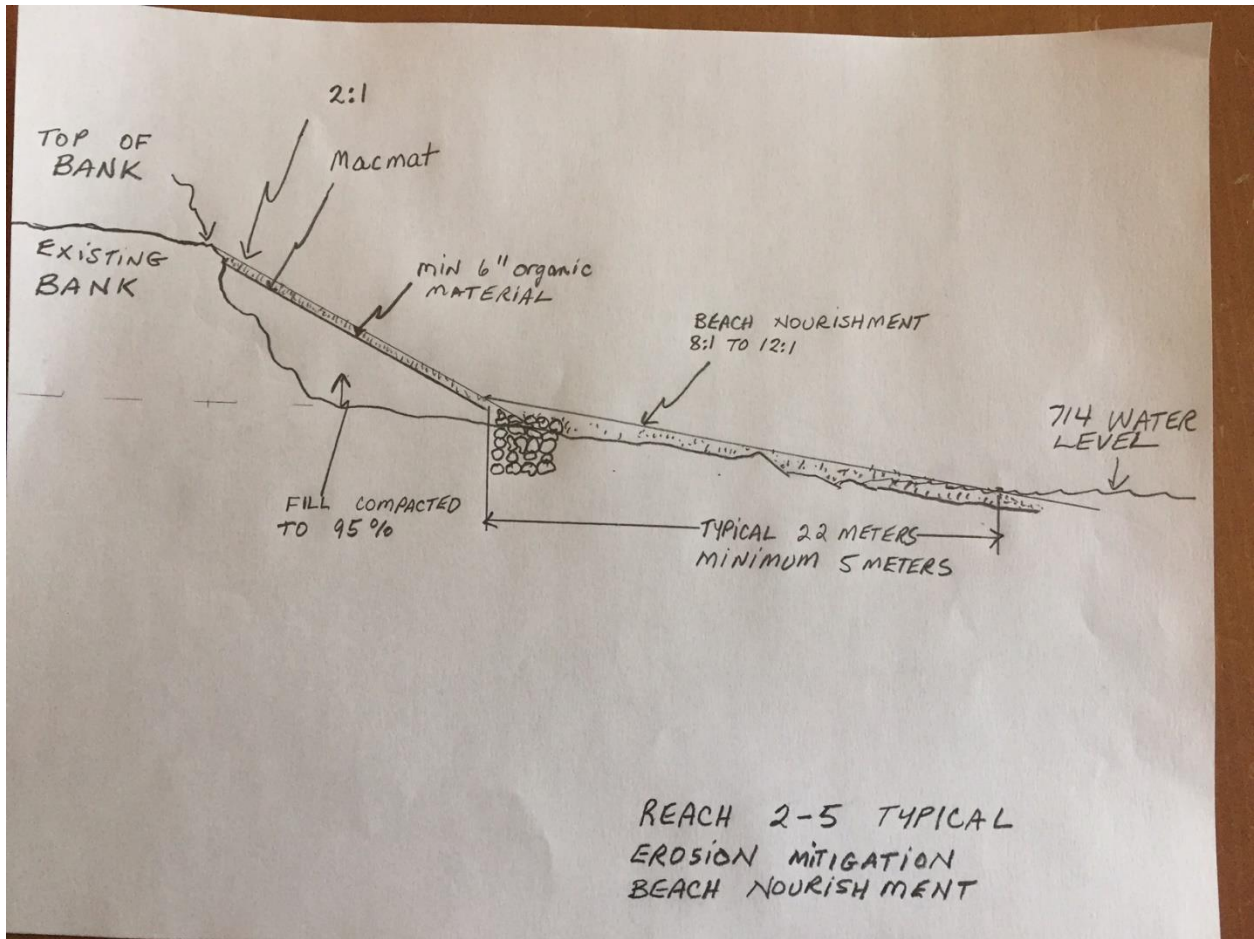 2:1
TOP OF
BANK
Macmat
EXISTING
BANK
MIN 6" organic
MATERIAL
BEACH NOURISHMENT
8:1 TO 12:1
714 WATER
LEVEL
FILL COMPACTED
TO 95%
TYPICAL 22 METERS
MINIMUM 5 METERS
REACH 2-5 TYPICAL
EROSION MITIGATION
BEACH NOURISHMENT